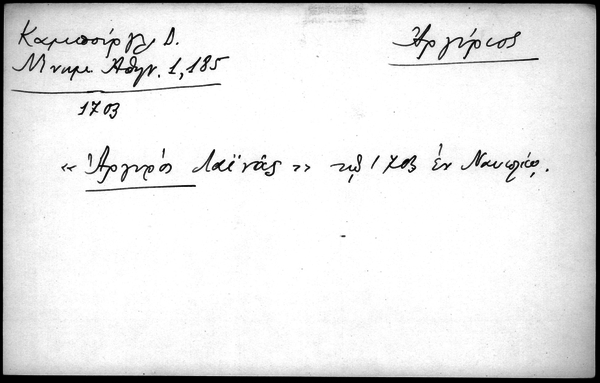 Καμπούργλ Δ.
Μνημ. Αθην. 1,185
1703
Ἀργύριος
«Ἀργυρός Λαϊνᾶς» τῷ 1703 ἐν Ναυπλίῳ.